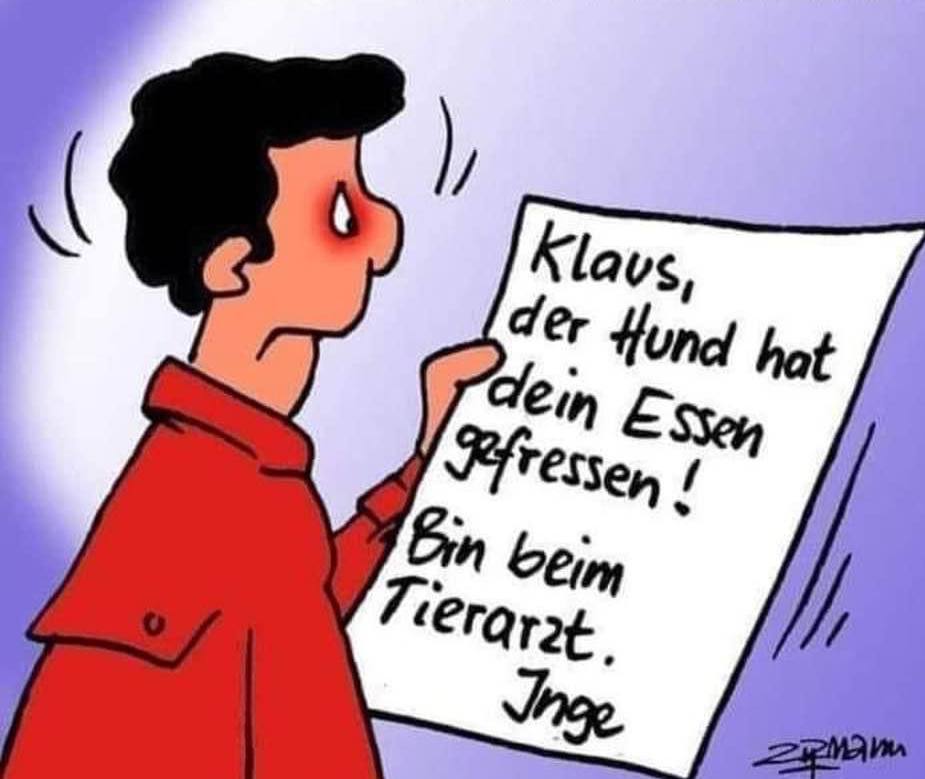 Klaus,
der Hund hat
dein Essen
gefressen!
Bin beim
Tierarzt.
Inge